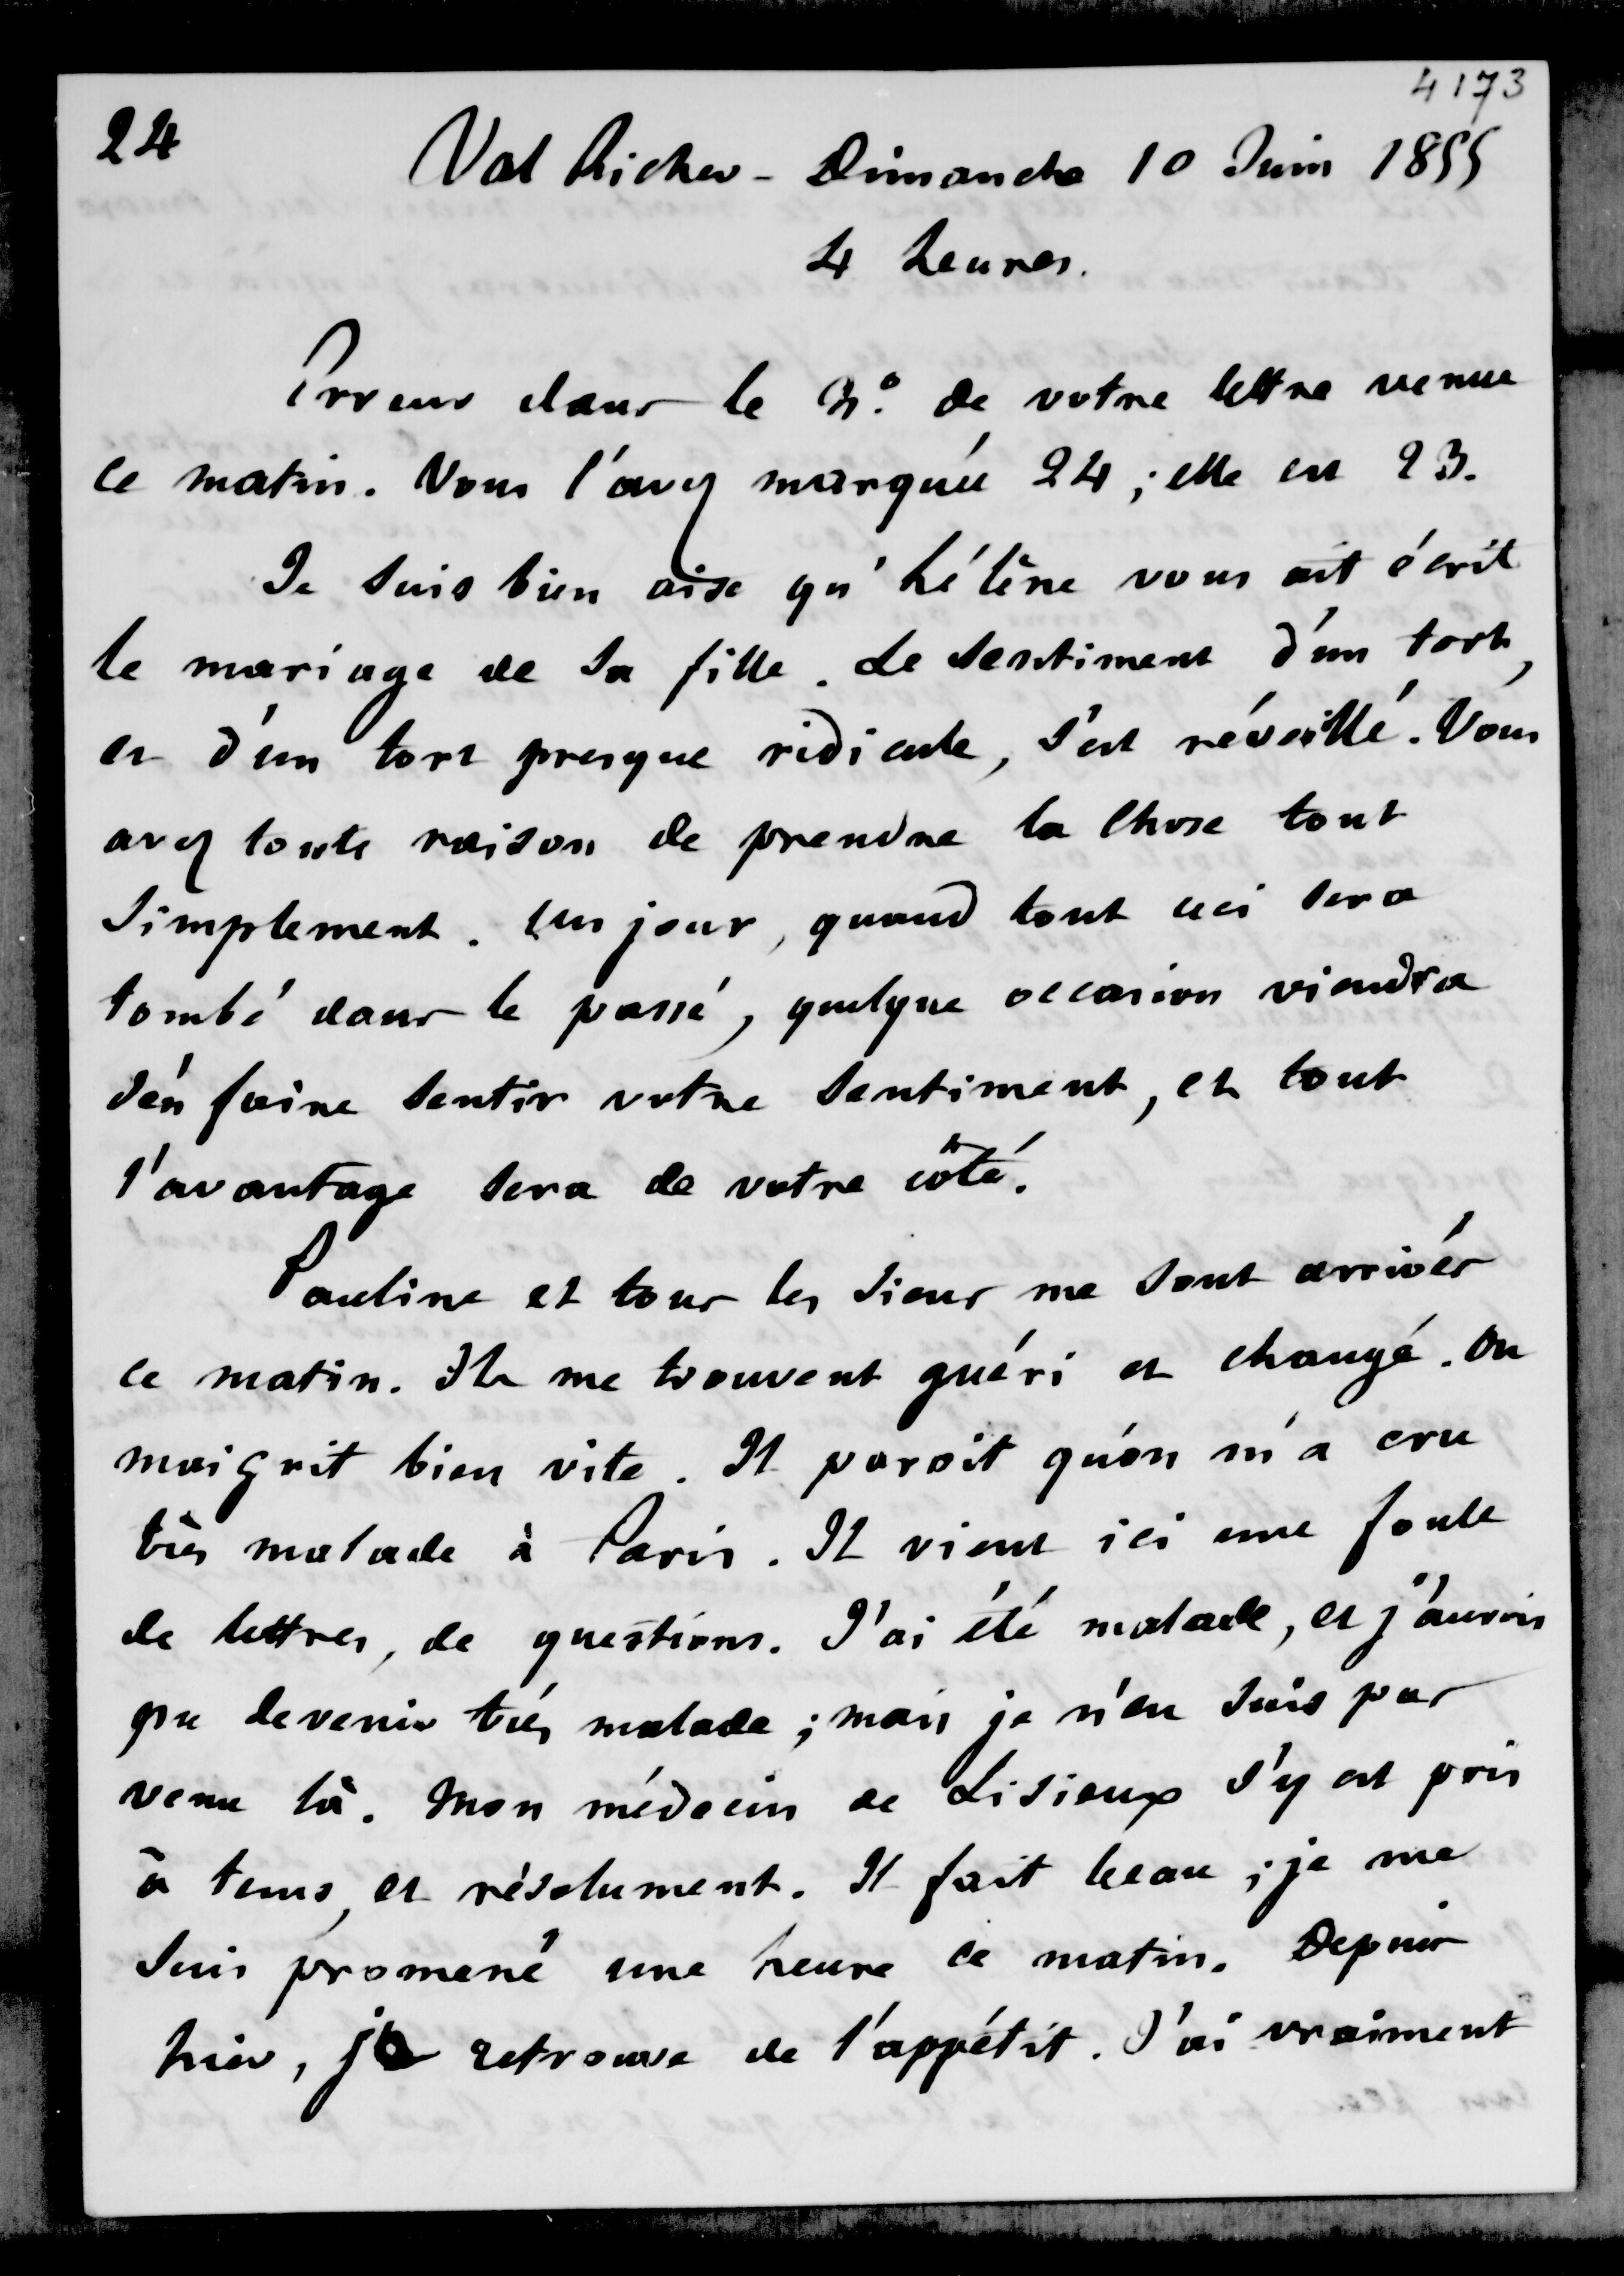 4173
24
Val Richer - Dimanche 10 Juin 1855
4 heures.
Erreur dans le N° de votre lettre venue
ce matin. Vous l'avez marquée 24 ; elle est 23.
Je suis bien aise qu'hélène vous ait écrit
le mariage de sa fille. Le sentiment d'un tort,
et d'un tort presque ridicule, s'est réveillé. Vous
avez toute raison de prendre la chose tout
simplement. Un jour, quand tout ceci sera
tombé dans le passé, quelque occasion viendra
d'en faire sentir votre sentiment, et tout
l'avantage sera de votre côté.
Pauline et tous les siens me sont arrivés
ce matin. Ils me trouvent guéri et changé. On
maigrit bien vite. Il paroit qu'on m'a cru
très malade à Paris. Il vient ici une foule
de lettres, de questions. J'ai été malade, et j'aurois
pu devenir très malade ; mais je n'en suis pas
venu là. Mon médecin de Lisieux s'y est pris
à tems, et résolument. Il fait beau ; je me
suis promené une heure ce matin. Depuis
hier, je retrouve de l'appétit. J'ai vraiment